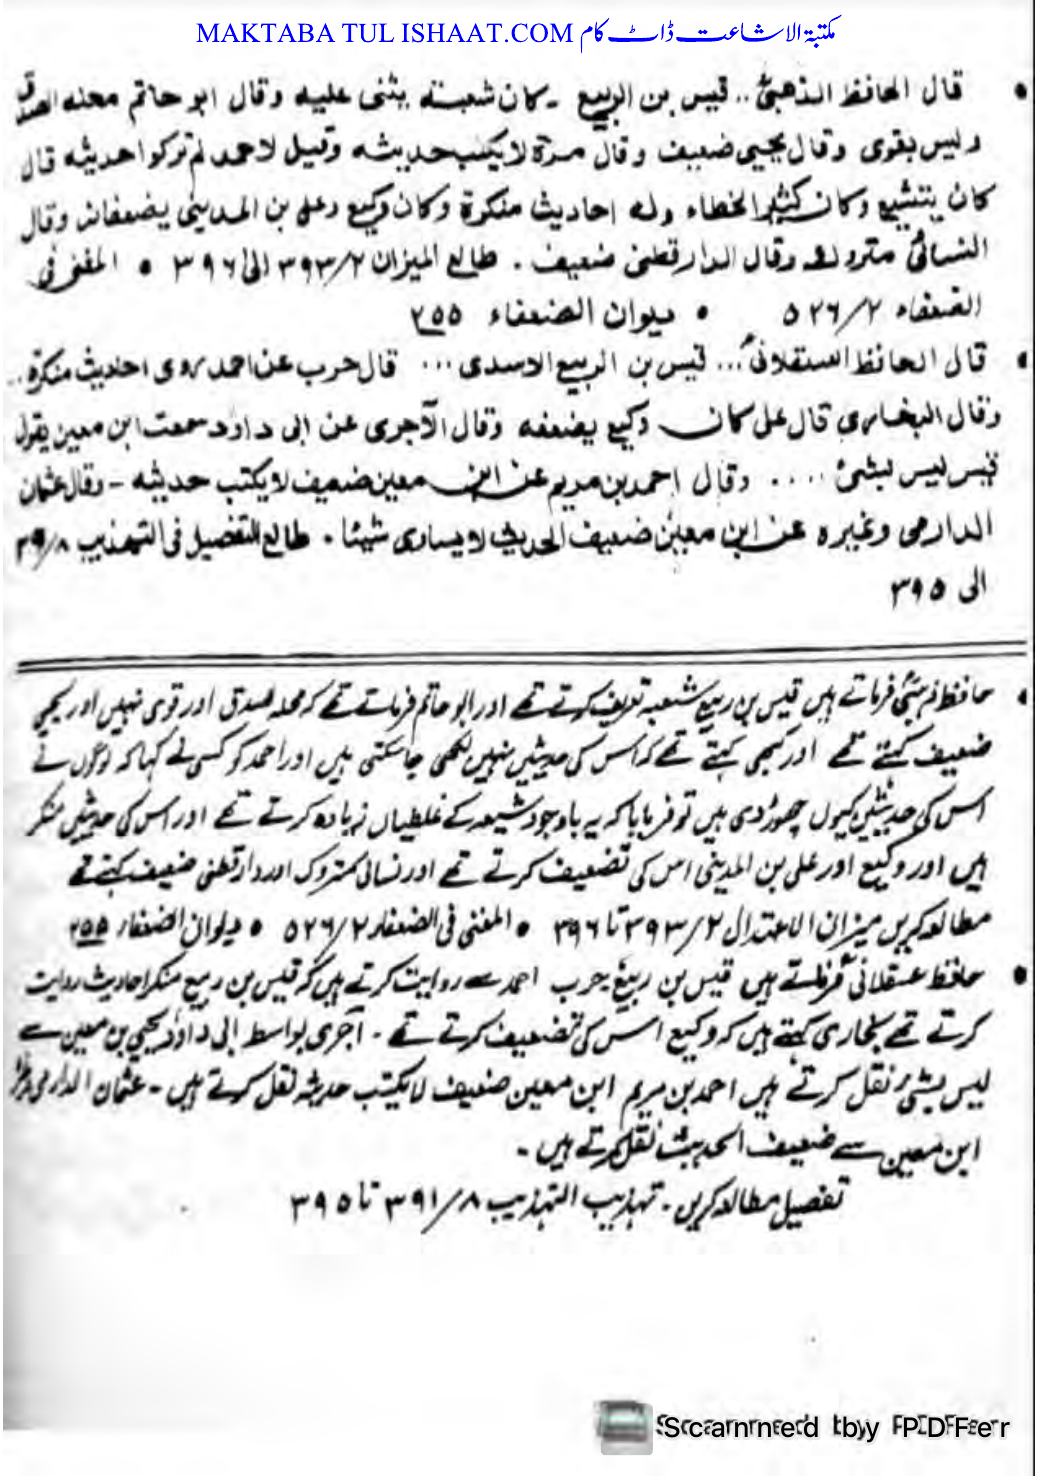 MAKTABA TUL ISHAAT.COM مکتبۃ الاشاعت ڈاٹ کام
• قال الحافظ الذهبیؒ .. قیس بن الربیع ۔ کان شعبتہ یثنی علیہ وقال ابو حاتم محلہ الصدق
ولیس بقوی وقال یحیی ضعیف وقال مرۃ لا یکتب حدیثہ وقیل لاحمد لم ترکوا حدیثہ قال
کان یتشیع وکان کثیر الخطاء ولہ احادیث منکرۃ وکان وکیع وعلی بن المدینی یضعفانہ وقال
النسائی متروک وقال الدارقطنی ضعیف . طالع المیزان ۳۹۳/۲ الی ۳۹۶ • المغنی فی
الضعفاء ۵۲۶/۲ • دیوان الضعفاء ۲۵۵
• قال الحافظ العسقلانیؒ ... قیس بن الربیع الاسدی ... قال حرب عن احمد روی احادیث منکرۃ ..
وقال البخاری قال علی کان وکیع یضعفہ وقال الآجری عن ابی داود سمعت ابن معین یقول
قیس لیس بشئ .... وقال احمد بن مریم عن ابن معین ضعیف لا یکتب حدیثہ - وقال عثمان
الدارمی وغیرہ عن ابن معین ضعیف الحدیث لا یساوی شیئا . طالع التفصیل فی التہذیب ۳۹/۸
الی ۳۹۵
• حافظ ذہبیؒ فرماتے ہیں قیس بن ربیع شعبہ تعریف کرتے تھے اور ابو حاتم فرماتے تھے کہ محلہ الصدق اور قوی نہیں اور یحیی
ضعیف کہتے تھے اور کبھی کہتے تھے کہ اس کی حدیثیں نہیں لکھی جا سکتی ہیں اور احمد کو کسی نے کہا کہ لوگوں نے
اس کی حدیثیں کیوں چھوڑ دی ہیں تو فرمایا کہ یہ باوجود شیعہ کے غلطیاں زیادہ کرتے تھے اور اس کی حدیثیں منکر
ہیں اور وکیع اور علی بن المدینی اس کی تضعیف کرتے تھے اور نسائی متروک اور دارقطنی ضعیف کہتے تھے
مطالعہ کریں میزان الاعتدال ۳۹۳/۲ تا ۳۹۶ • المغنی فی الضعفاء ۵۲۶/۲ • دیوان الضعفاء ۲۵۵
• حافظ عسقلانیؒ فرماتے ہیں قیس بن ربیع حرب احمد سے روایت کرتے ہیں کہ قیس بن ربیع منکر احادیث روایت
کرتے تھے بخاری کہتے ہیں کہ وکیع اس کی تضعیف کرتے تھے ۔ آجری بواسطہ ابی داود یحیی بن معین سے
لیس بشئ نقل کرتے ہیں احمد بن مریم ابن معین ضعیف لا یکتب حدیثہ نقل کرتے ہیں ۔ عثمان الدارمی وغیرہ
ابن معین سے ضعیف الحدیث نقل کرتے ہیں ۔
تفصیل مطالعہ کریں ۔ تہذیب التہذیب ۳۹۱/۸ تا ۳۹۵
Scanned by PDFer